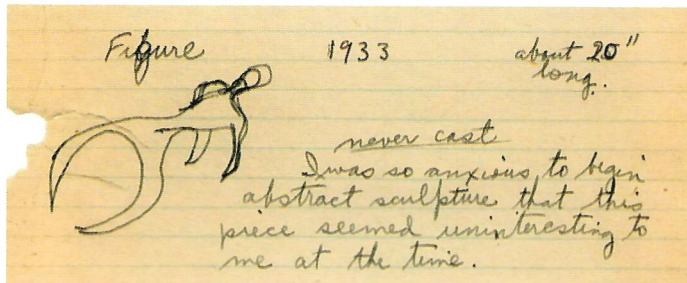 Figure 1933 about 20"
long.
never cast
I was so anxious to begin
abstract sculpture that this
piece seemed uninteresting to
me at the time.